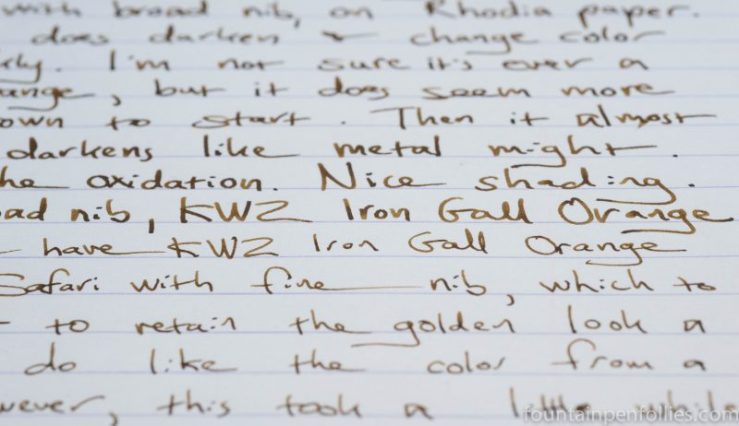 with broad nib, on Rhodia paper.
does darken & change color
I'm not sure it's ever a
, but it does seem more
own to start. Then it almost
darkens like metal might.
he oxidation. Nice shading.
ad nib, KWZ Iron Gall Orange
have KWZ Iron Gall Orange
Safari with fine nib, which to
to retain the golden look a
do like the color from a
wever, this took a little while
fountainpenfollies.com